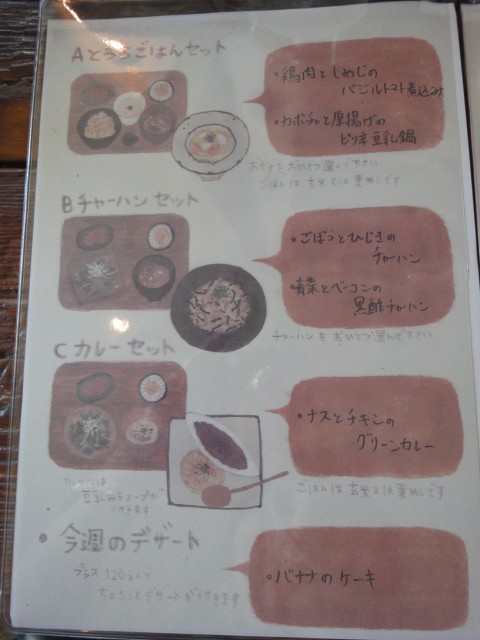 Aとろろごはんセット
・鶏肉としめじの
バジルトマト煮込み
・カボチャと厚揚げの
ピリ辛豆乳鍋
おかずをおひとつ選んで下さい
ごはんは玄米又は麦めしです
Bチャーハンセット
・ごぼうとひじきの
チャーハン
・青菜とベーコンの
黒酢チャーハン
チャーハンをおひとつ選んで下さい
Cカレーセット
・ナスとチキンの
グリーンカレー
カレーには
豆乳みそスープが
付きます
ごはんは玄米又は麦めしです
・今週のデザート
プラス120えんで
ちょこっとデザートが付きます
・バナナのケーキ